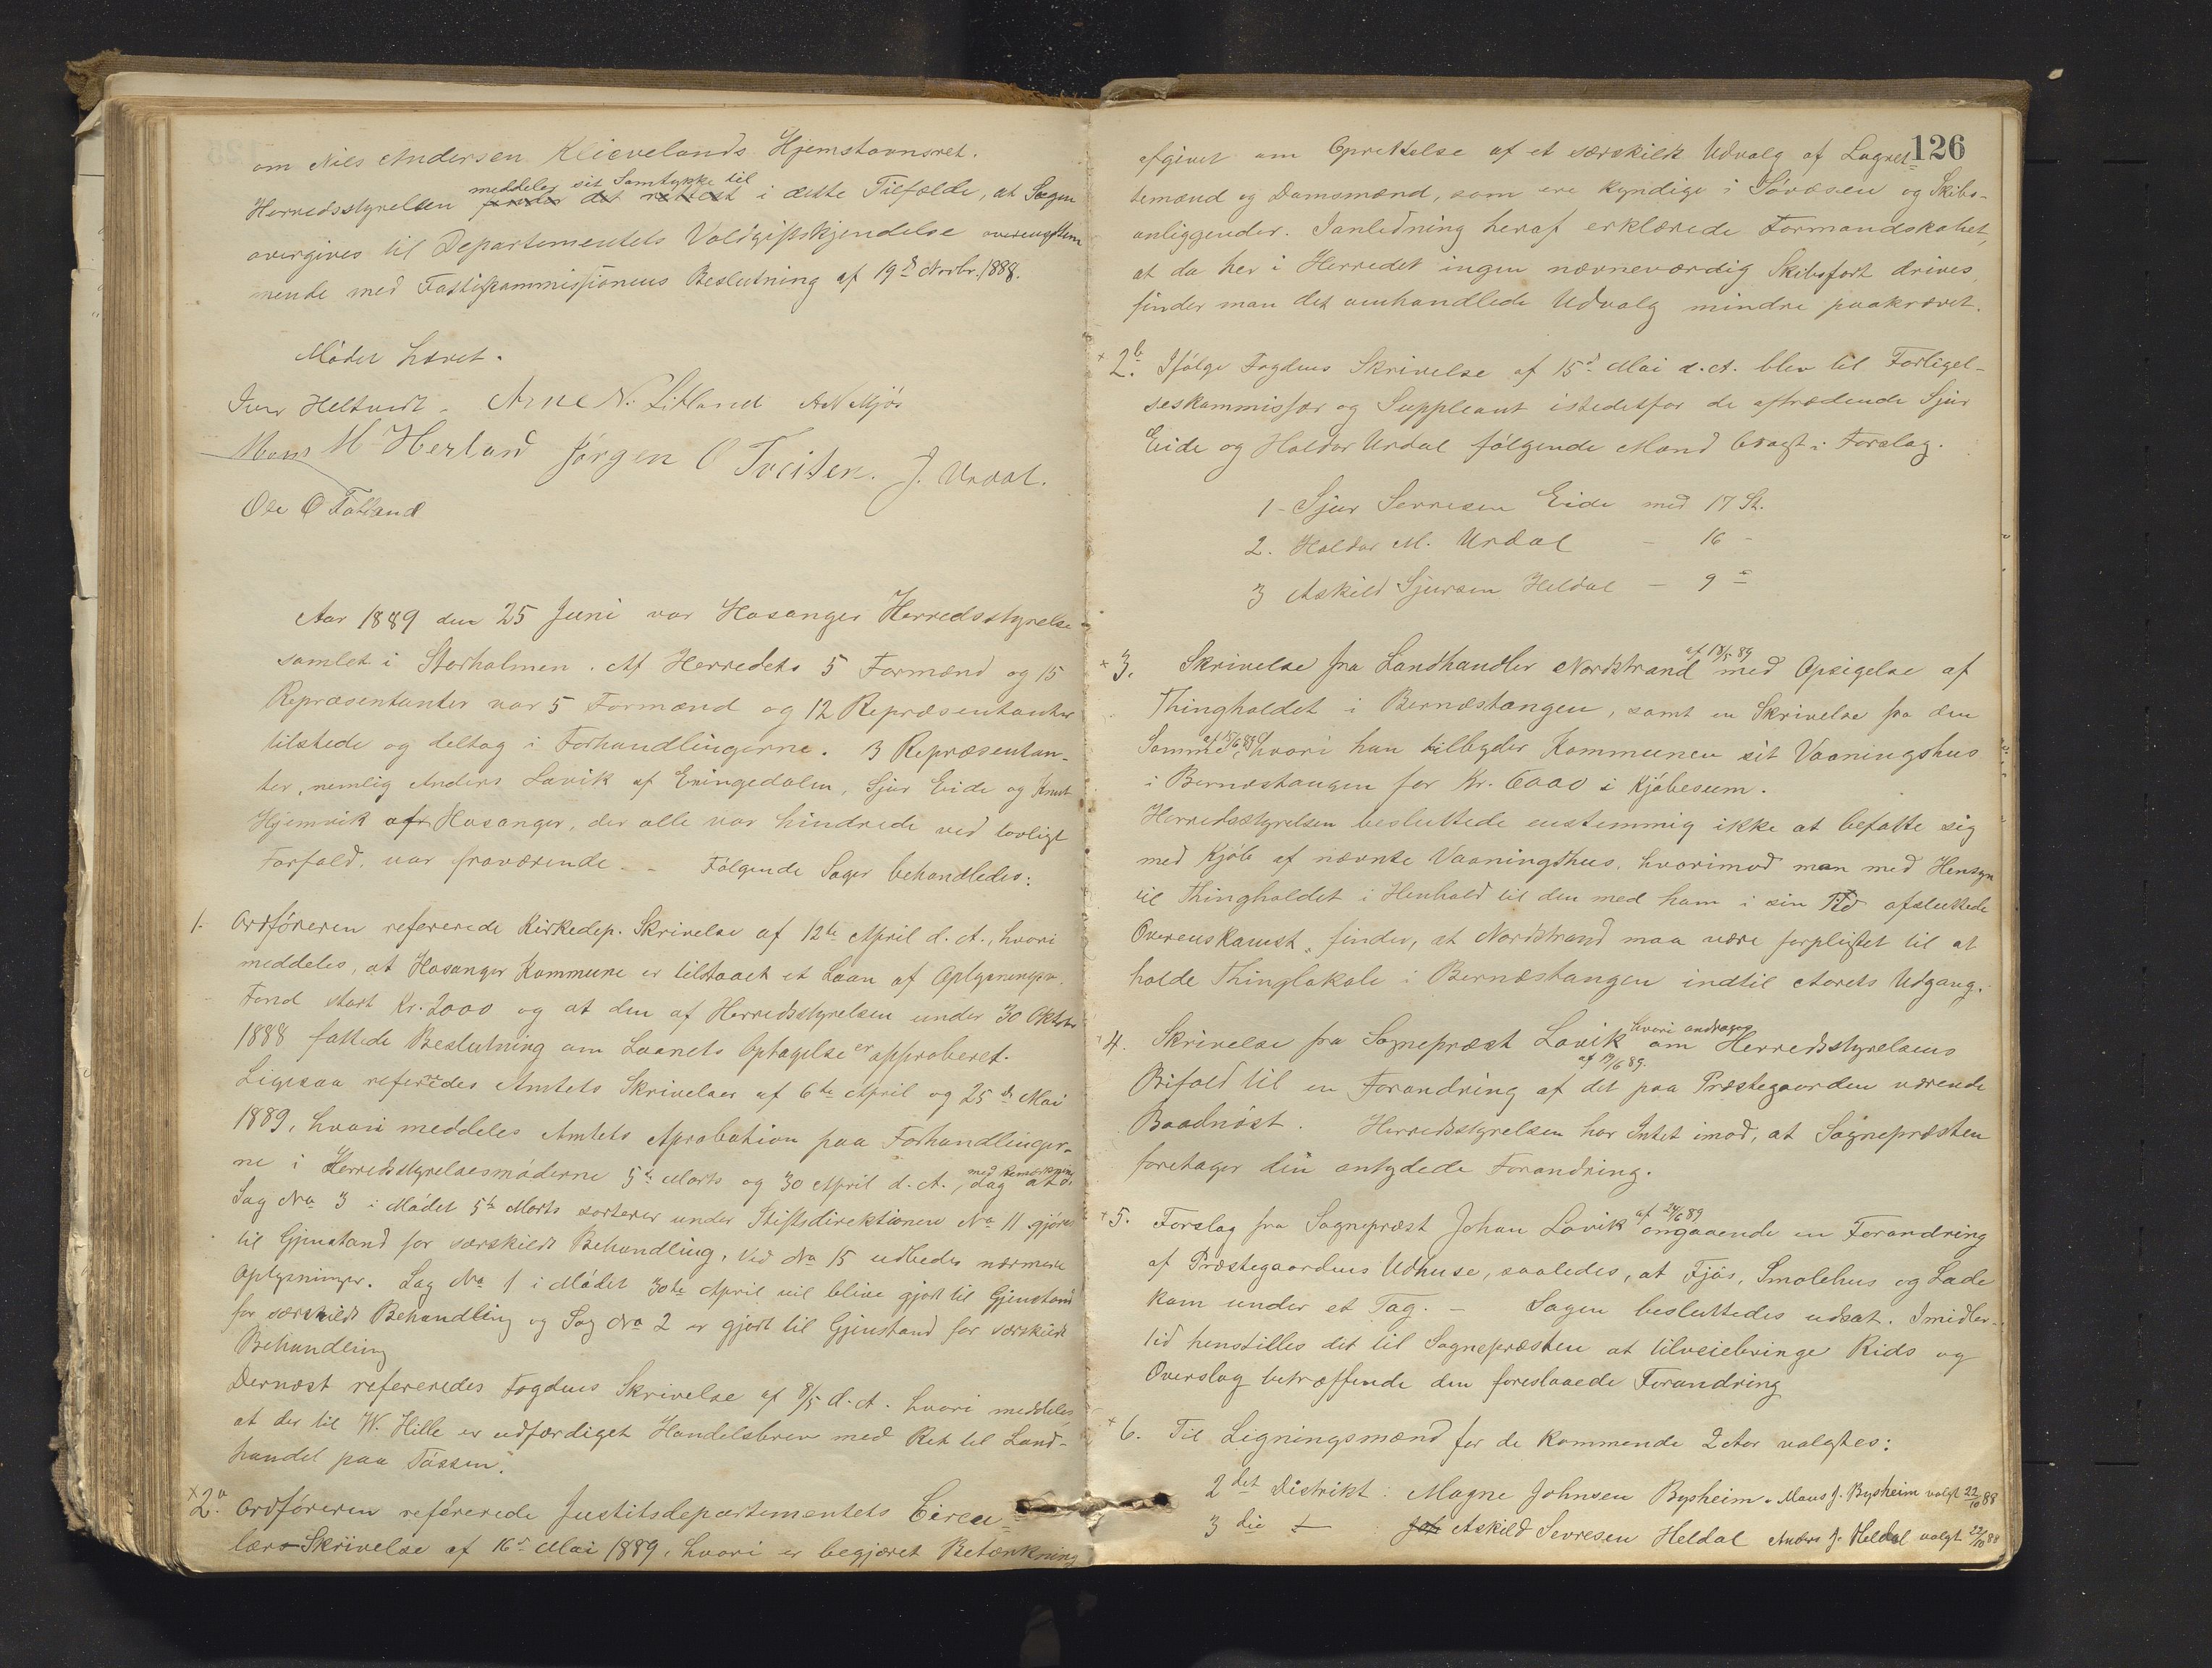 om Nils Andersen Kleivelands Hjemstavnsret.
meddeler sit Samtykke til
Herredsstyrelsen finder det rettest i dette Tilfælde, at Sagen
overgives til Departementets Voldgiftskjendelse overensstem
mende med Fattigkommissionens Beslutning af 19d Novbr. 1888.
Mødet hævet.
Iver Heltvedt. Arne N. Litland A N Mjøs
Mons M Herland Jørgen O Tveiten. J. Urdal.
Ole O Fotland
Aar 1889 den 25 Juni var Hosanger Herredsstyrelse
samlet i Storholmen. Af Herredets 5 Formænd og 15
Repræsentanter var 5 Formænd og 12 Repræsentanter
tilstede og deltog i Forhandlingerne. 3 Repræsentan-
ter, nemlig Anders Lavik af Eningedalen, Sjur Eide og Knut
Hjemvik af Hosanger, der alle var hindrede ved lovligt
Forfald, var fraværende. - Følgende Sager behandledes:
1. Ordføreren refererede Kirkedep. Skrivelse af 12te April d. A., hvori
meddeles, at Hosanger Kommune er tilstaaet et Laan af Oplysningsv.
Fond stort Kr. 2000 og at den af Herredsstyrelsen under 30 Oktober
1888 fattede Beslutning om Laanets Optagelse er approberet.
Ligesaa refereredes Amtets Skrivelser af 6te April og 25de Mai
1889, hvori meddeles Amtets Aprobation paa Forhandlinger-
ne i Herredsstyrelsesmøderne 5te Marts og 30 April d. A., dog med Bemærkning at
Sag No 3 i Mødet 5te Marts sorterer under Stiftsdirektionen No 11 gjøres
til Gjenstand for særskildt Behandling. Ved No 15 udbedes nærmere
Oplysninger. Sag No 1 i Mødet 30te April vil blive gjort til Gjenstand
for særskildt Behandling og Sag No 2 er gjort til Gjenstand for særskildt
Behandling
Dernæst refereredes Fogdens Skrivelse af 8/5 d. A. hvori meddeles,
at der til W. Hille er udfærdiget Handelsbrev med Ret til Land-
handel paa Tøssen.
x 2.a Ordføreren refererede Justitsdepartementets Circu-
lær-Skrivelse af 16d Mai 1889, hvori er begjæret Betænkning
126
afgivet om Oprettelse af et særskilt Udvalg af Lagret-
temænd og Domsmænd, som ere kyndige i Søvæsen og Skibs-
anliggender. I anledning heraf erklærede Formandskabet,
at da her i Herredet ingen nævneværdig Skibsfart drives,
finder man det omhandlede Udvalg mindre paakrævet.
x 2.b Ifølge Fogdens Skrivelse af 15d Mai d. A. blev til Forligel-
seskommissær og Suppleant istedetfor de aftrædende Sjur
Eide og Haldor Urdal følgende Mænd bragt i Forslag.
1 - Sjur Sevresen Eide med 17 St.
2. Haldor M. Urdal - 16 -
3 Askild Sjursen Heldal - 9 -
x 3. Skrivelse fra Landhandler Nordstrand af 18/5 89 med Opsigelse af
Thingholdet i Bernæstangen, samt en Skrivelse fra den
Samme af 15/6 89, hvori han tilbyder Kommunen sit Vaaningshus
i Bernæstangen for Kr. 6000 i Kjøbesum.
Herredsstyrelsen besluttede enstemmig ikke at befatte sig
med Kjøb af nævnte Vaaningshus, hvorimod man med Hensyn
til Thingholdet i Henhold til den med ham i sin Tid afsluttede
Overenskomst, finder, at Nordstrand maa være forpligtet til at
holde Thinglokale i Bernæstangen indtil Aarets Udgang.
4. Skrivelse fra Sognepræst Lavik af 19/6 89. hvori andrages om Herredsstyrelsens
Bifald til en Forandring af det paa Præstegaarden værende
Baadnøst. Herredsstyrelsen har Intet imod, at Sognepræsten
foretager den antydede Forandring.
x 5. Forslag fra Sognepræst Johan Lavik af 24/6 89 angaaende en Forandring
af Præstegaardens Udhuse, saaledes, at Fjøs, Smalehus og Lade
kom under et Tag. - Sagen besluttedes udsat. Imidler-
tid henstilles det til Sognepræsten at tilveiebringe Rids og
Overslag betræffende den foreslaaede Forandring
x 6. Til Ligningsmænd for de kommende 2 Aar valgtes:
2det Distrikt: Magne Johnsen Bysheim. Mons J. Bysheim valgt 22/10 88
3die - : Joh Askild Sevresen Heldal Anders J. Heldal valgt 22/10 88